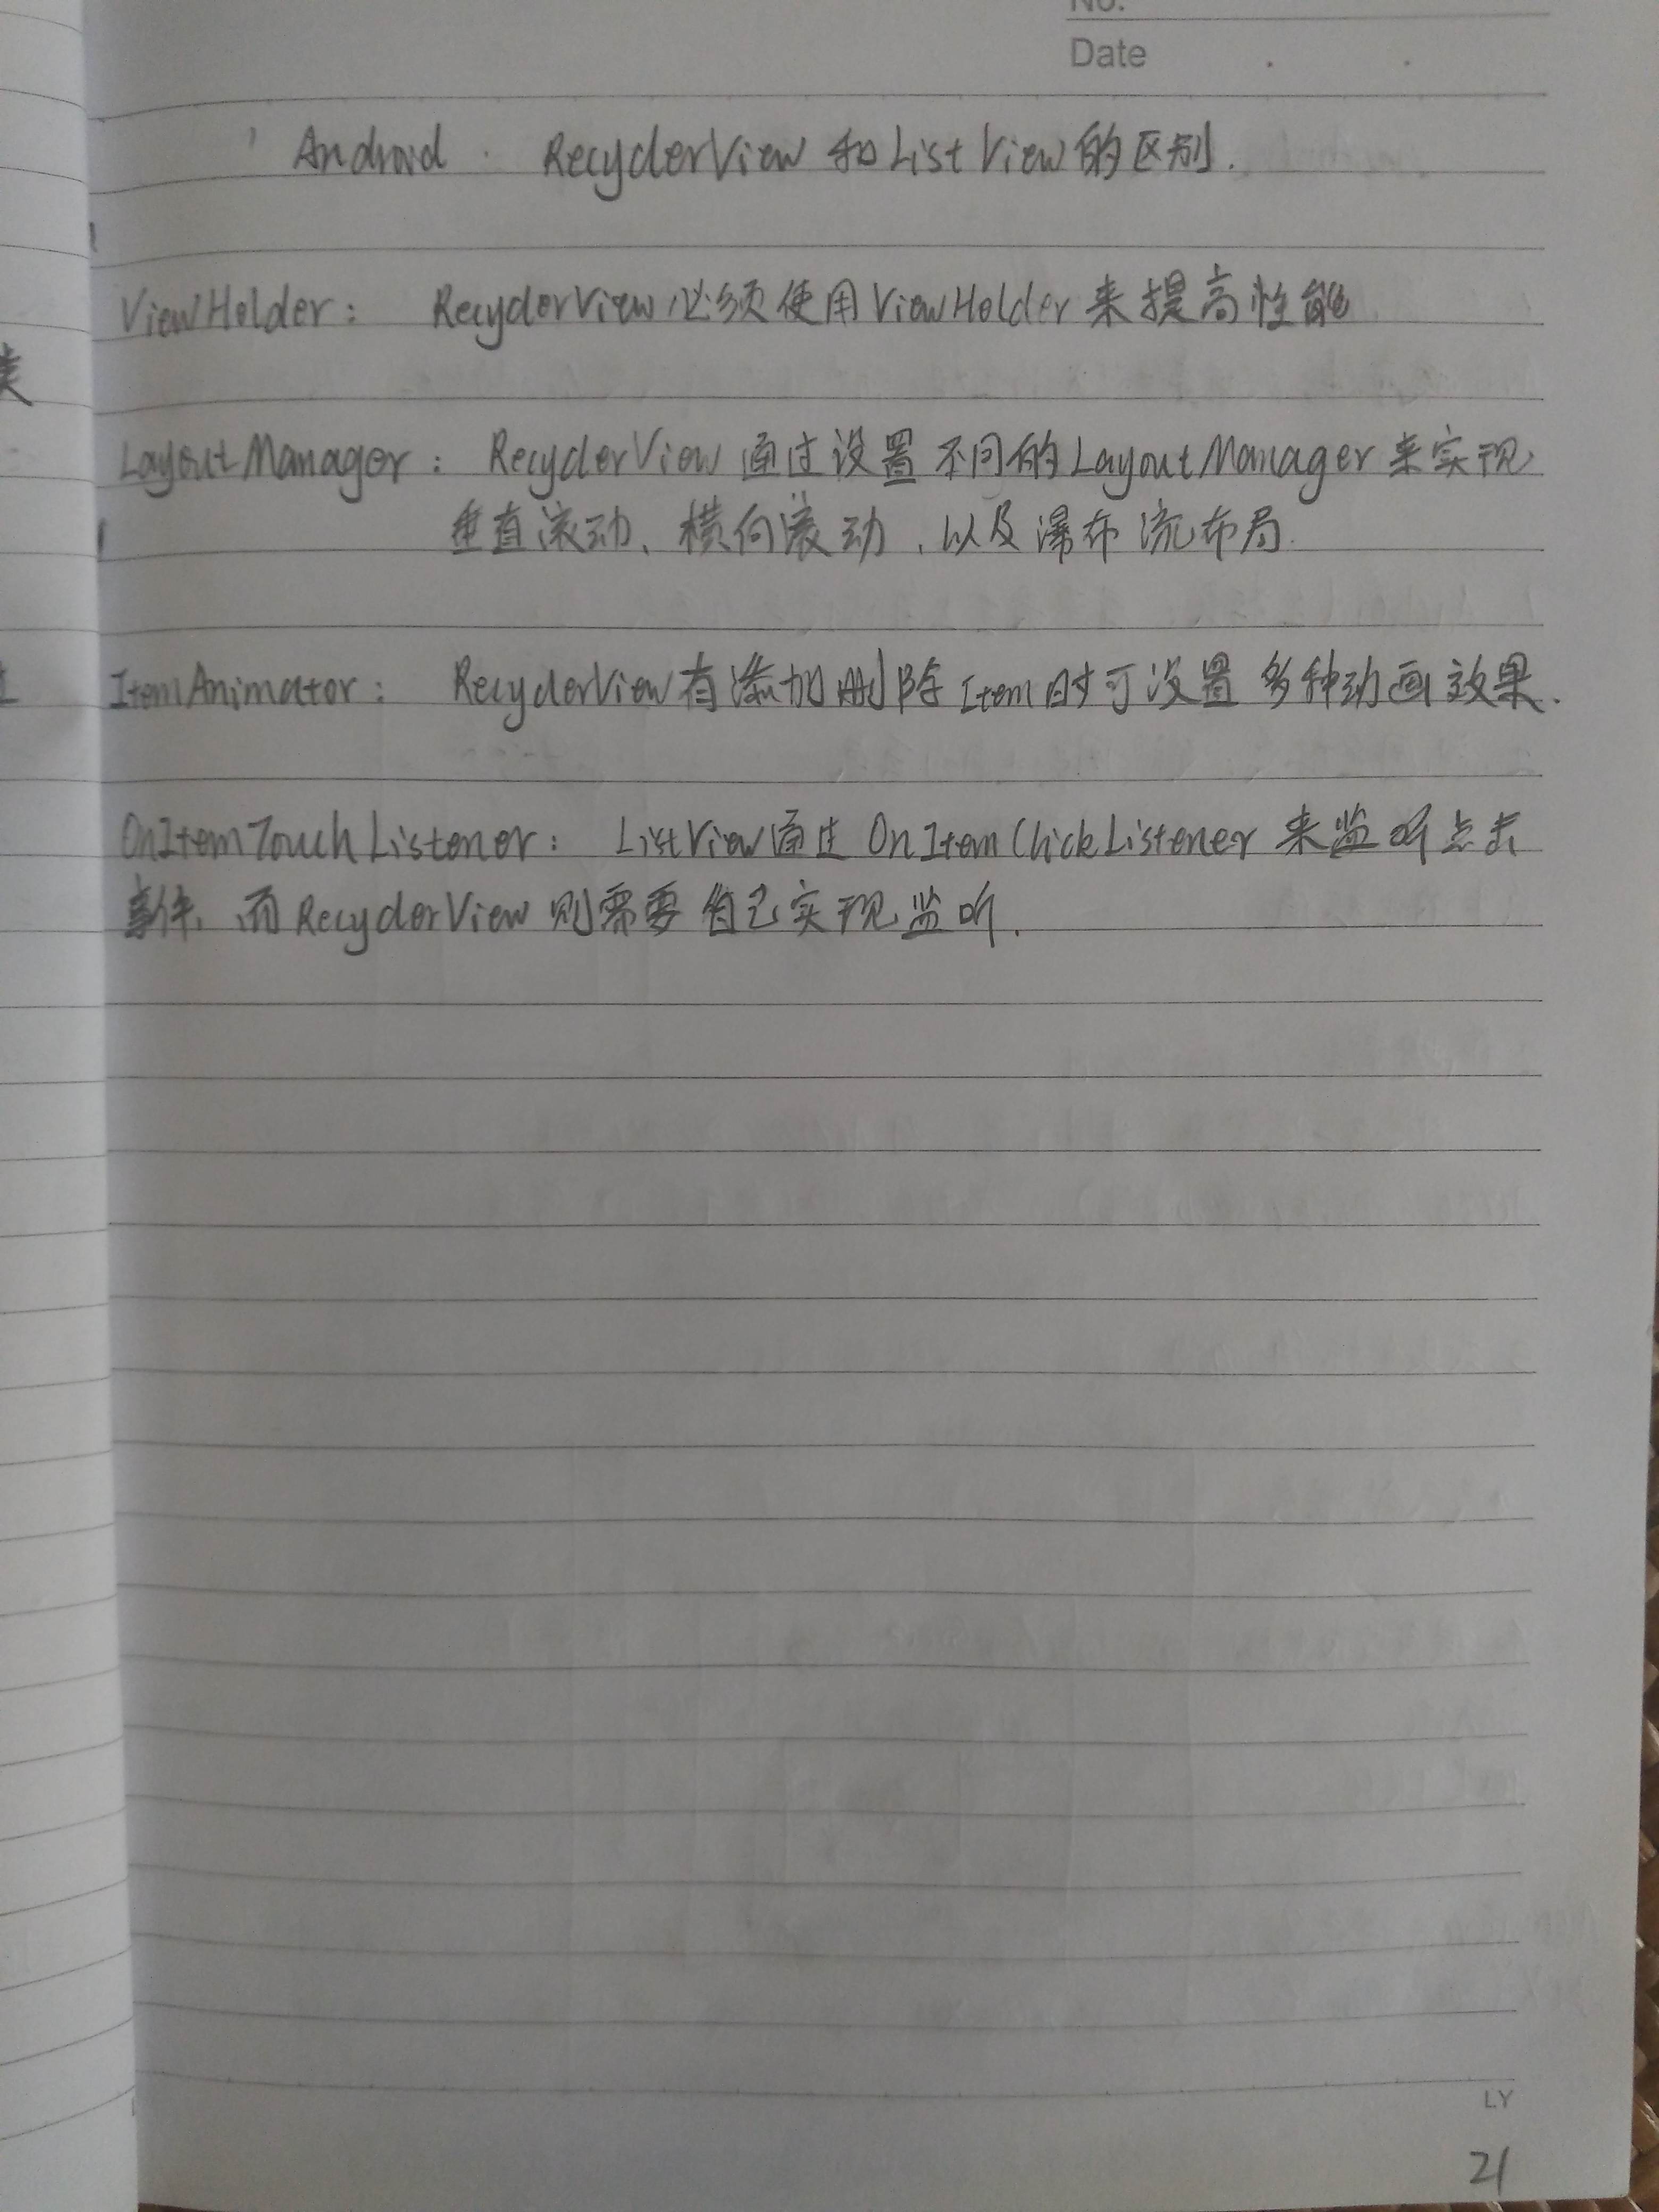 No.
Date
Android RecyclerView 和 ListView 的区别.
ViewHolder: RecyclerView 必须使用 ViewHolder 来提高性能
类
LayoutManager: RecyclerView 通过设置不同的 LayoutManager 来实现
垂直滚动、横向滚动,以及瀑布流布局.
ItemAnimator: RecyclerView 有添加删除 Item 时可设置多种动画效果.
OnItemTouchListener: ListView 通过 OnItemClickListener 来监听点击
事件,而 RecyclerView 则需要自己实现监听.
LY
21